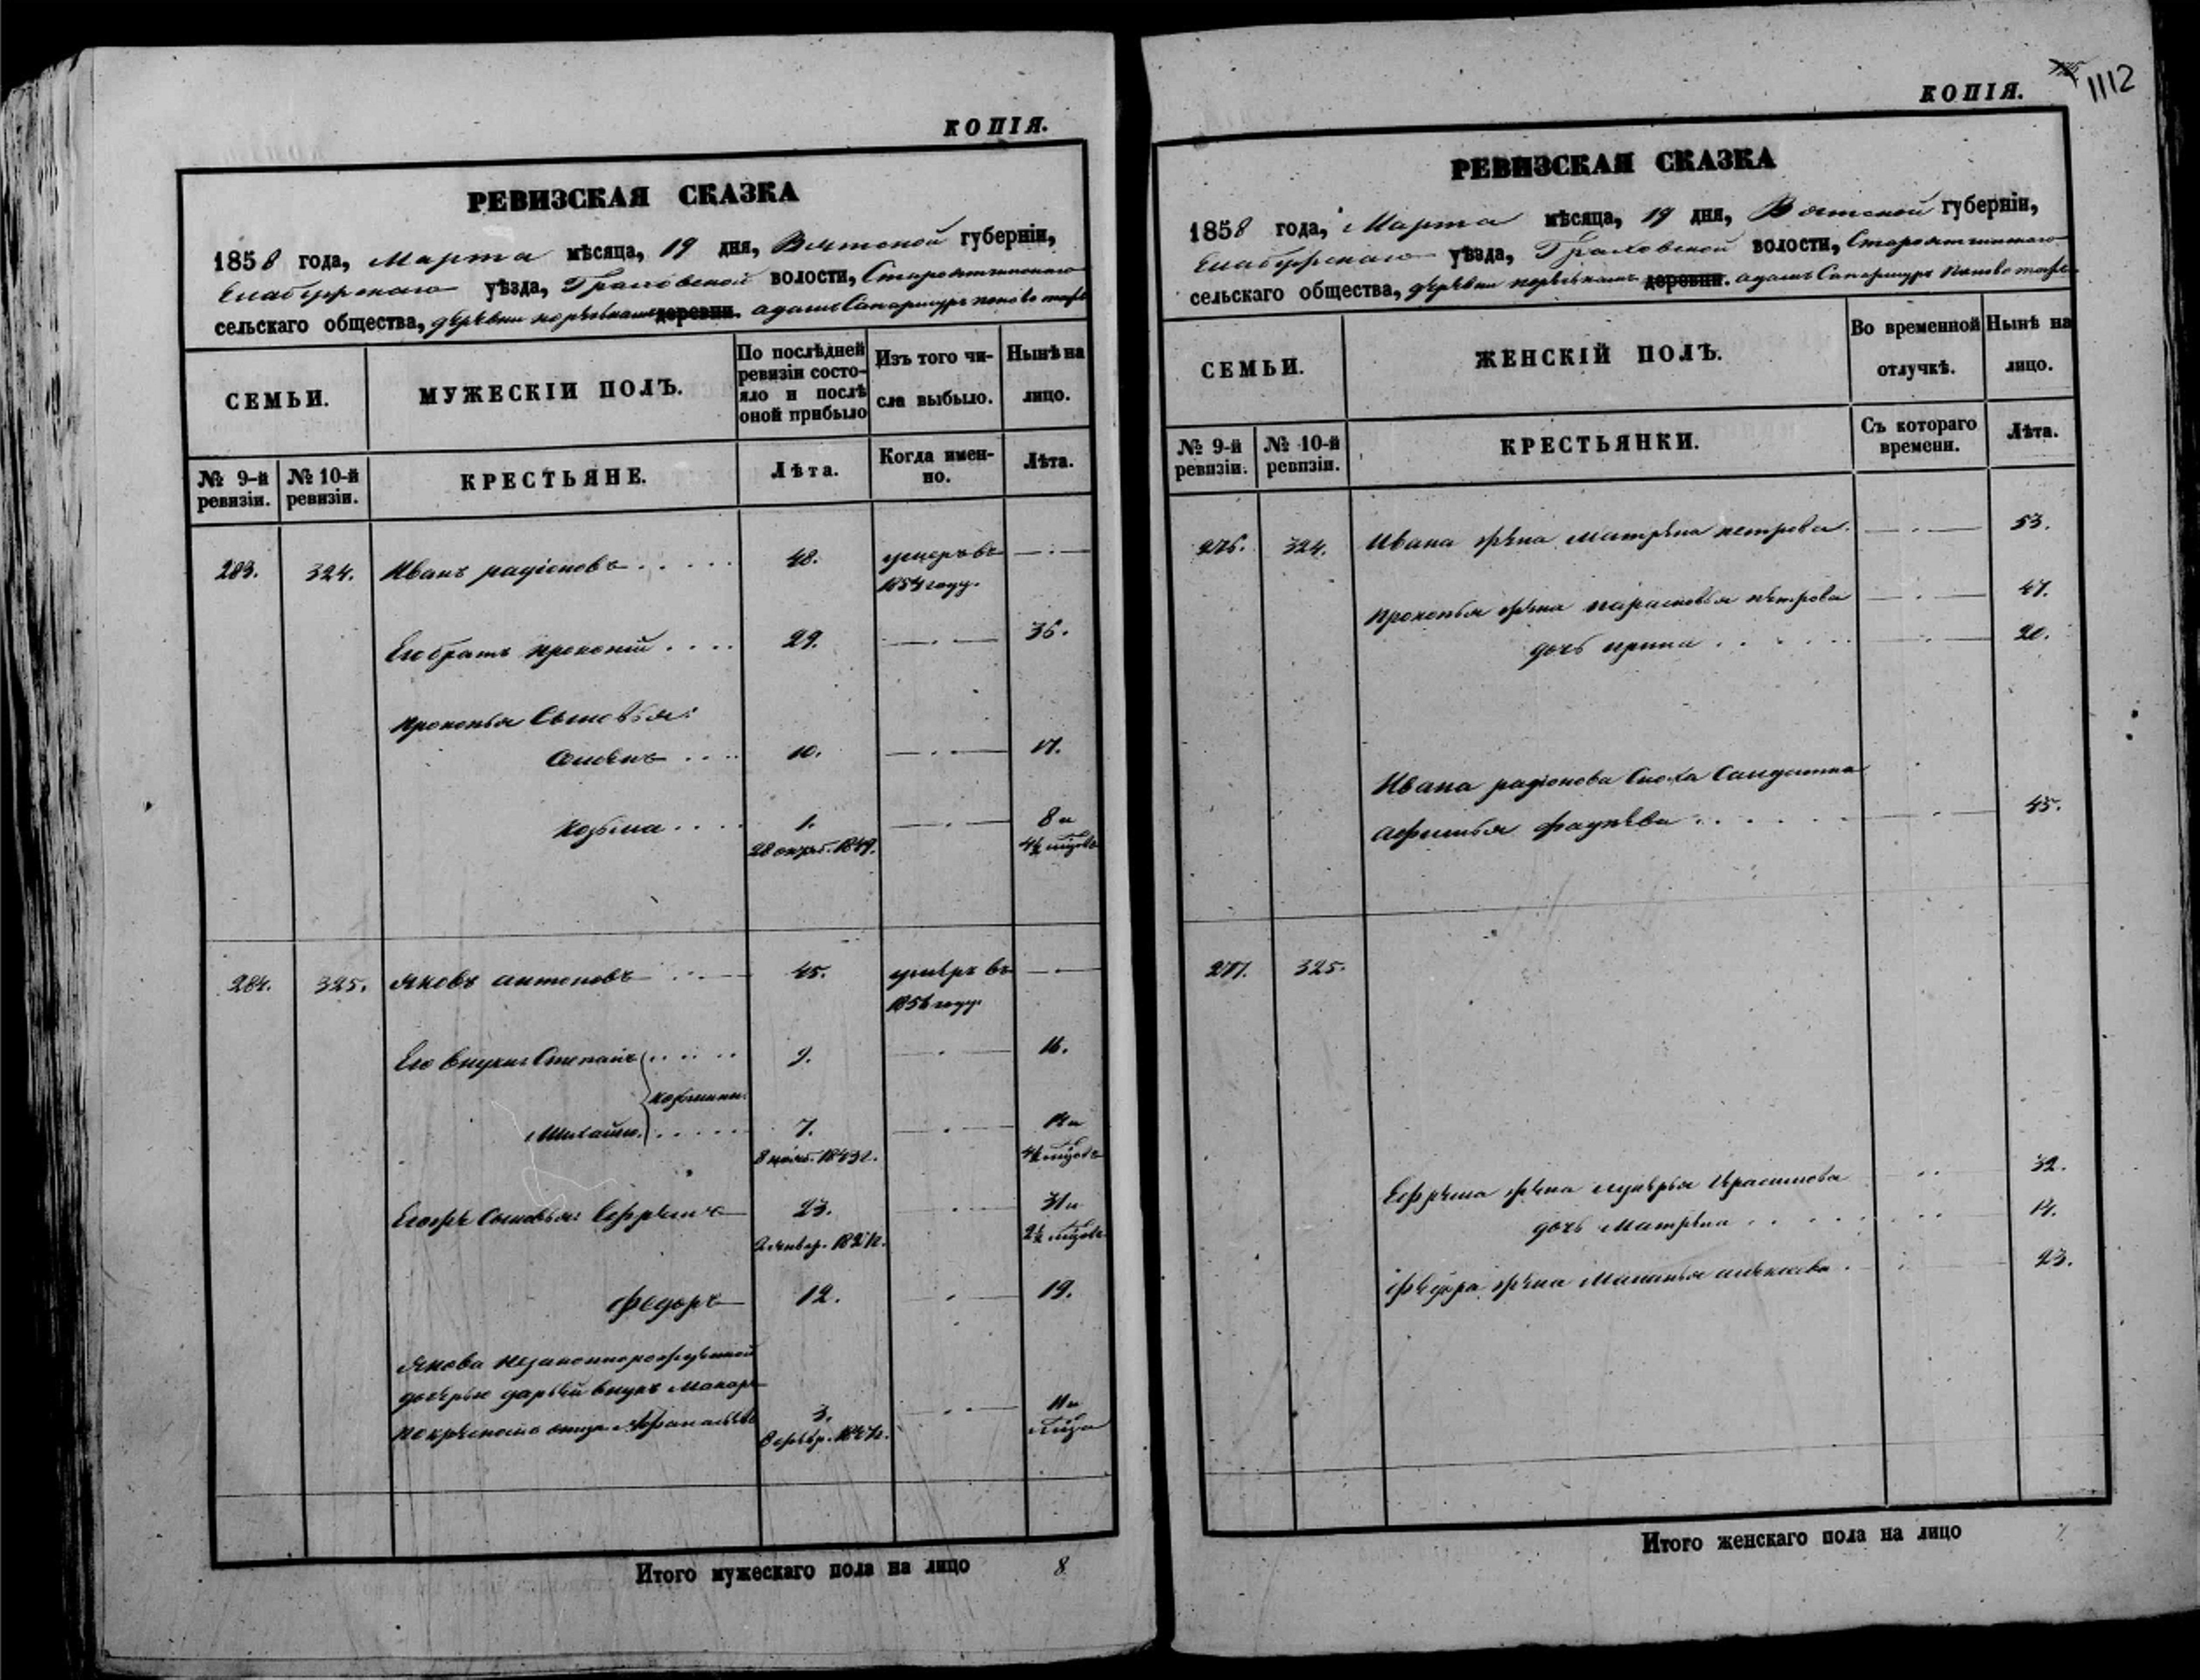 КОПІЯ.
РЕВИЗСКАЯ СКАЗКА
1858 года, Марта мѣсяца, 19 дня, Вятской губерніи,
Елабужскаго уѣзда, Граховской волости,
сельскаго общества, деревни деревни.
СЕМЬИ.
МУЖЕСКІЙ ПОЛЪ.
По послѣдней ревизіи состояло и послѣ оной прибыло
Изъ того числа выбыло.
Нынѣ на лицо.
№ 9-й ревизіи.
№ 10-й ревизіи.
КРЕСТЬЯНЕ.
Лѣта.
Когда именно.
Лѣта.
283. 324. Иванъ радіоновъ 48. умеръ въ
1854 году.
Его братъ прокопій 29. 36.
прокопья Сыновья:
Семенъ 10. 17.
козьма 1. 8 и
28 октяб. 1849. 4½ мѣсяцовъ
284. 325. Яковъ антоновъ 45. умеръ въ
1856 году.
Его внуки: Степанъ 9. 16.
козьмины
Михайло 7. 14 и
8 нояб. 1843 г. 4½ мѣсяцовъ
Сыновья: Ефремъ 23. 31 и
2 январ. 1827 г. 2½ мѣсяцовъ
Федоръ 12. 19.
Якова незаконнорожденной
дочерью дарьей внукъ Макаръ
по крестномъ отцѣ 3. 11 и
1847 г. мѣсяца
Итого мужескаго пола на лицо 8
КОПІЯ.
1112
РЕВИЗСКАЯ СКАЗКА
1858 года, Марта мѣсяца, 19 дня, Вятской губерніи,
Елабужскаго уѣзда, Граховской волости,
сельскаго общества, деревни деревни.
СЕМЬИ.
ЖЕНСКІЙ ПОЛЪ.
Во временной отлучкѣ.
Нынѣ на лицо.
№ 9-й ревизіи.
№ 10-й ревизіи.
КРЕСТЬЯНКИ.
Съ котораго времени.
Лѣта.
276. 324. Ивана жена Матрена петрова. 53.
Прокопья жена парасковья петрова 47.
дочь ирина 20.
Ивана радіонова Сноха Солдатка
афимья фадѣева 45.
277. 325.
Ефрема жена лукерья Герасимова 32.
дочь Матрена 14.
Федора жена Маланья алексѣева 23.
Итого женскаго пола на лицо 7